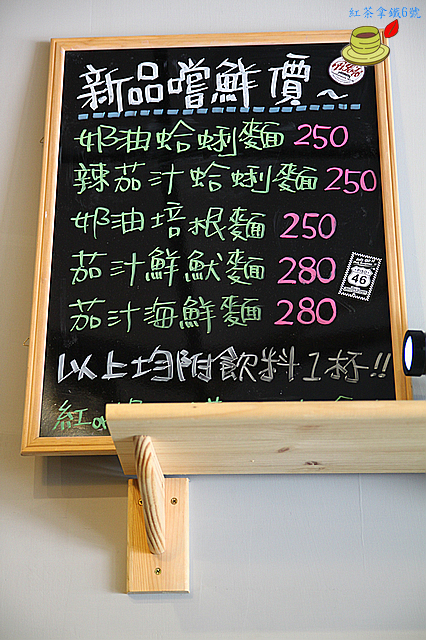 紅茶拿鐵6號
新品嚐鮮價~
奶油蛤蜊麵 250
辣茄汁蛤蜊麵 250
奶油培根麵 250
茄汁鮮魷麵 280
46
茄汁海鮮麵 280
以上均附飲料1杯!!
紅